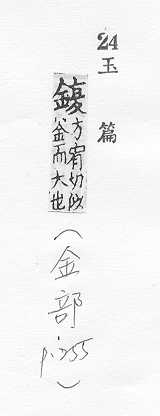 24 玉篇
鍑
方宥切似
釜而大也
(金部 p.255)